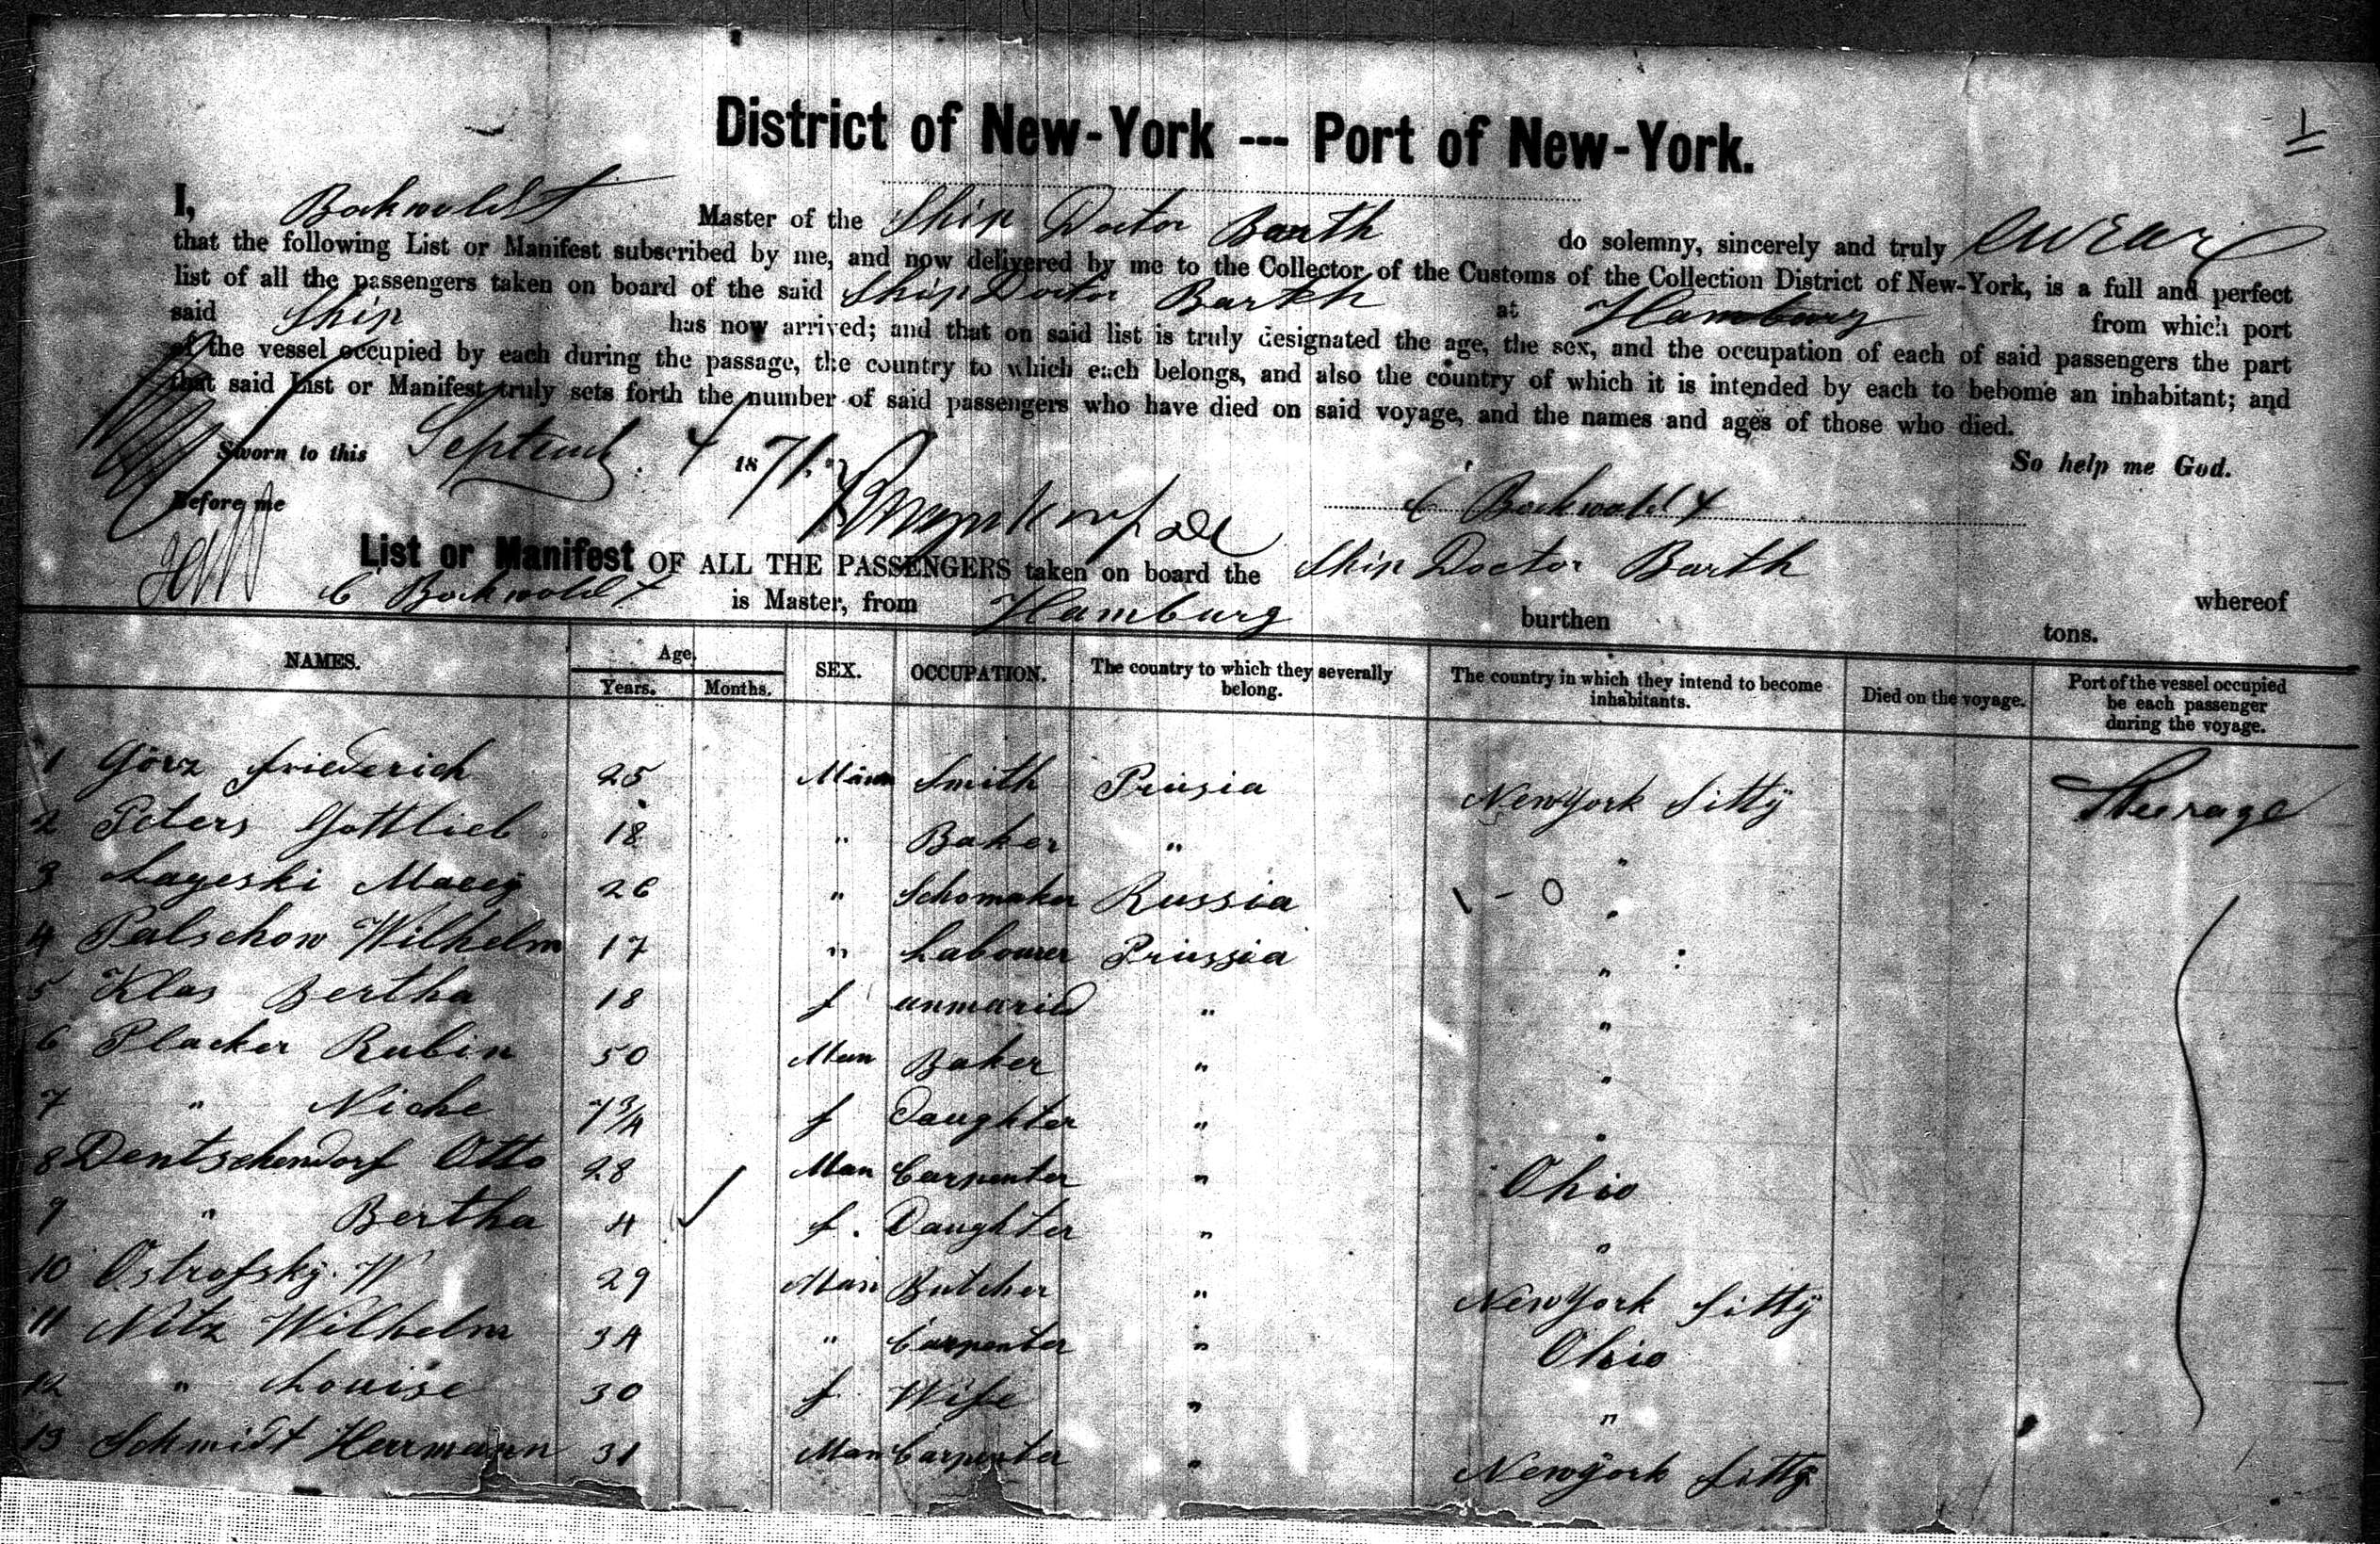 1
District of New-York --- Port of New-York.
I, Bockwoldt Master of the Ship Doctor Barth do solemny, sincerely and truly swear
that the following List or Manifest subscribed by me, and now delivered by me to the Collector of the Customs of the Collection District of New-York, is a full and perfect
list of all the passengers taken on board of the said Ship Doctor Barth at Hamburg from which port
said Ship has now arrived; and that on said list is truly designated the age, the sex, and the occupation of each of said passengers the part
of the vessel occupied by each during the passage, the country to which each belongs, and also the country of which it is intended by each to bebome an inhabitant; and
that said List or Manifest truly sets forth the number of said passengers who have died on said voyage, and the names and ages of those who died.
So help me God.
Sworn to this Septemb. 4 1871.
Before me C Bockwoldt
List or Manifest OF ALL THE PASSENGERS taken on board the Ship Doctor Barth whereof
C Bockwoldt is Master, from Hamburg burthen tons.
NAMES. Age. Years. Months. SEX. OCCUPATION. The country to which they severally belong. The country in which they intend to become inhabitants. Died on the voyage. Port of the vessel occupied be each passenger during the voyage.
1 Görz Friederich 25 Mann Smith Prusia NewYork Sitty Steerage
2 Peters Gottlieb 18 " Baker " "
3 Layeski 26 " Schomaker Russia 1 - 0 "
4 Palschow Wilhelm 17 " Labourer Prussia "
5 Klas Bertha 18 f unmaried " "
6 Placker Rubin 50 Man Baker " "
7 " Niche 7 3/4 f Daughter " "
8 Dentschendorf Otto 28 Man Carpenter " Ohio
9 " Bertha 4 f. Daughter " "
10 Ostrofsky. W 29 Man Butcher " NewYork Sitty
11 Nitz Wilhelm 34 " Carpenter " Ohio
12 " Louise 30 f Wife " "
13 Schmidt Herrmann 31 Man Carpenter " Newyork Sitty